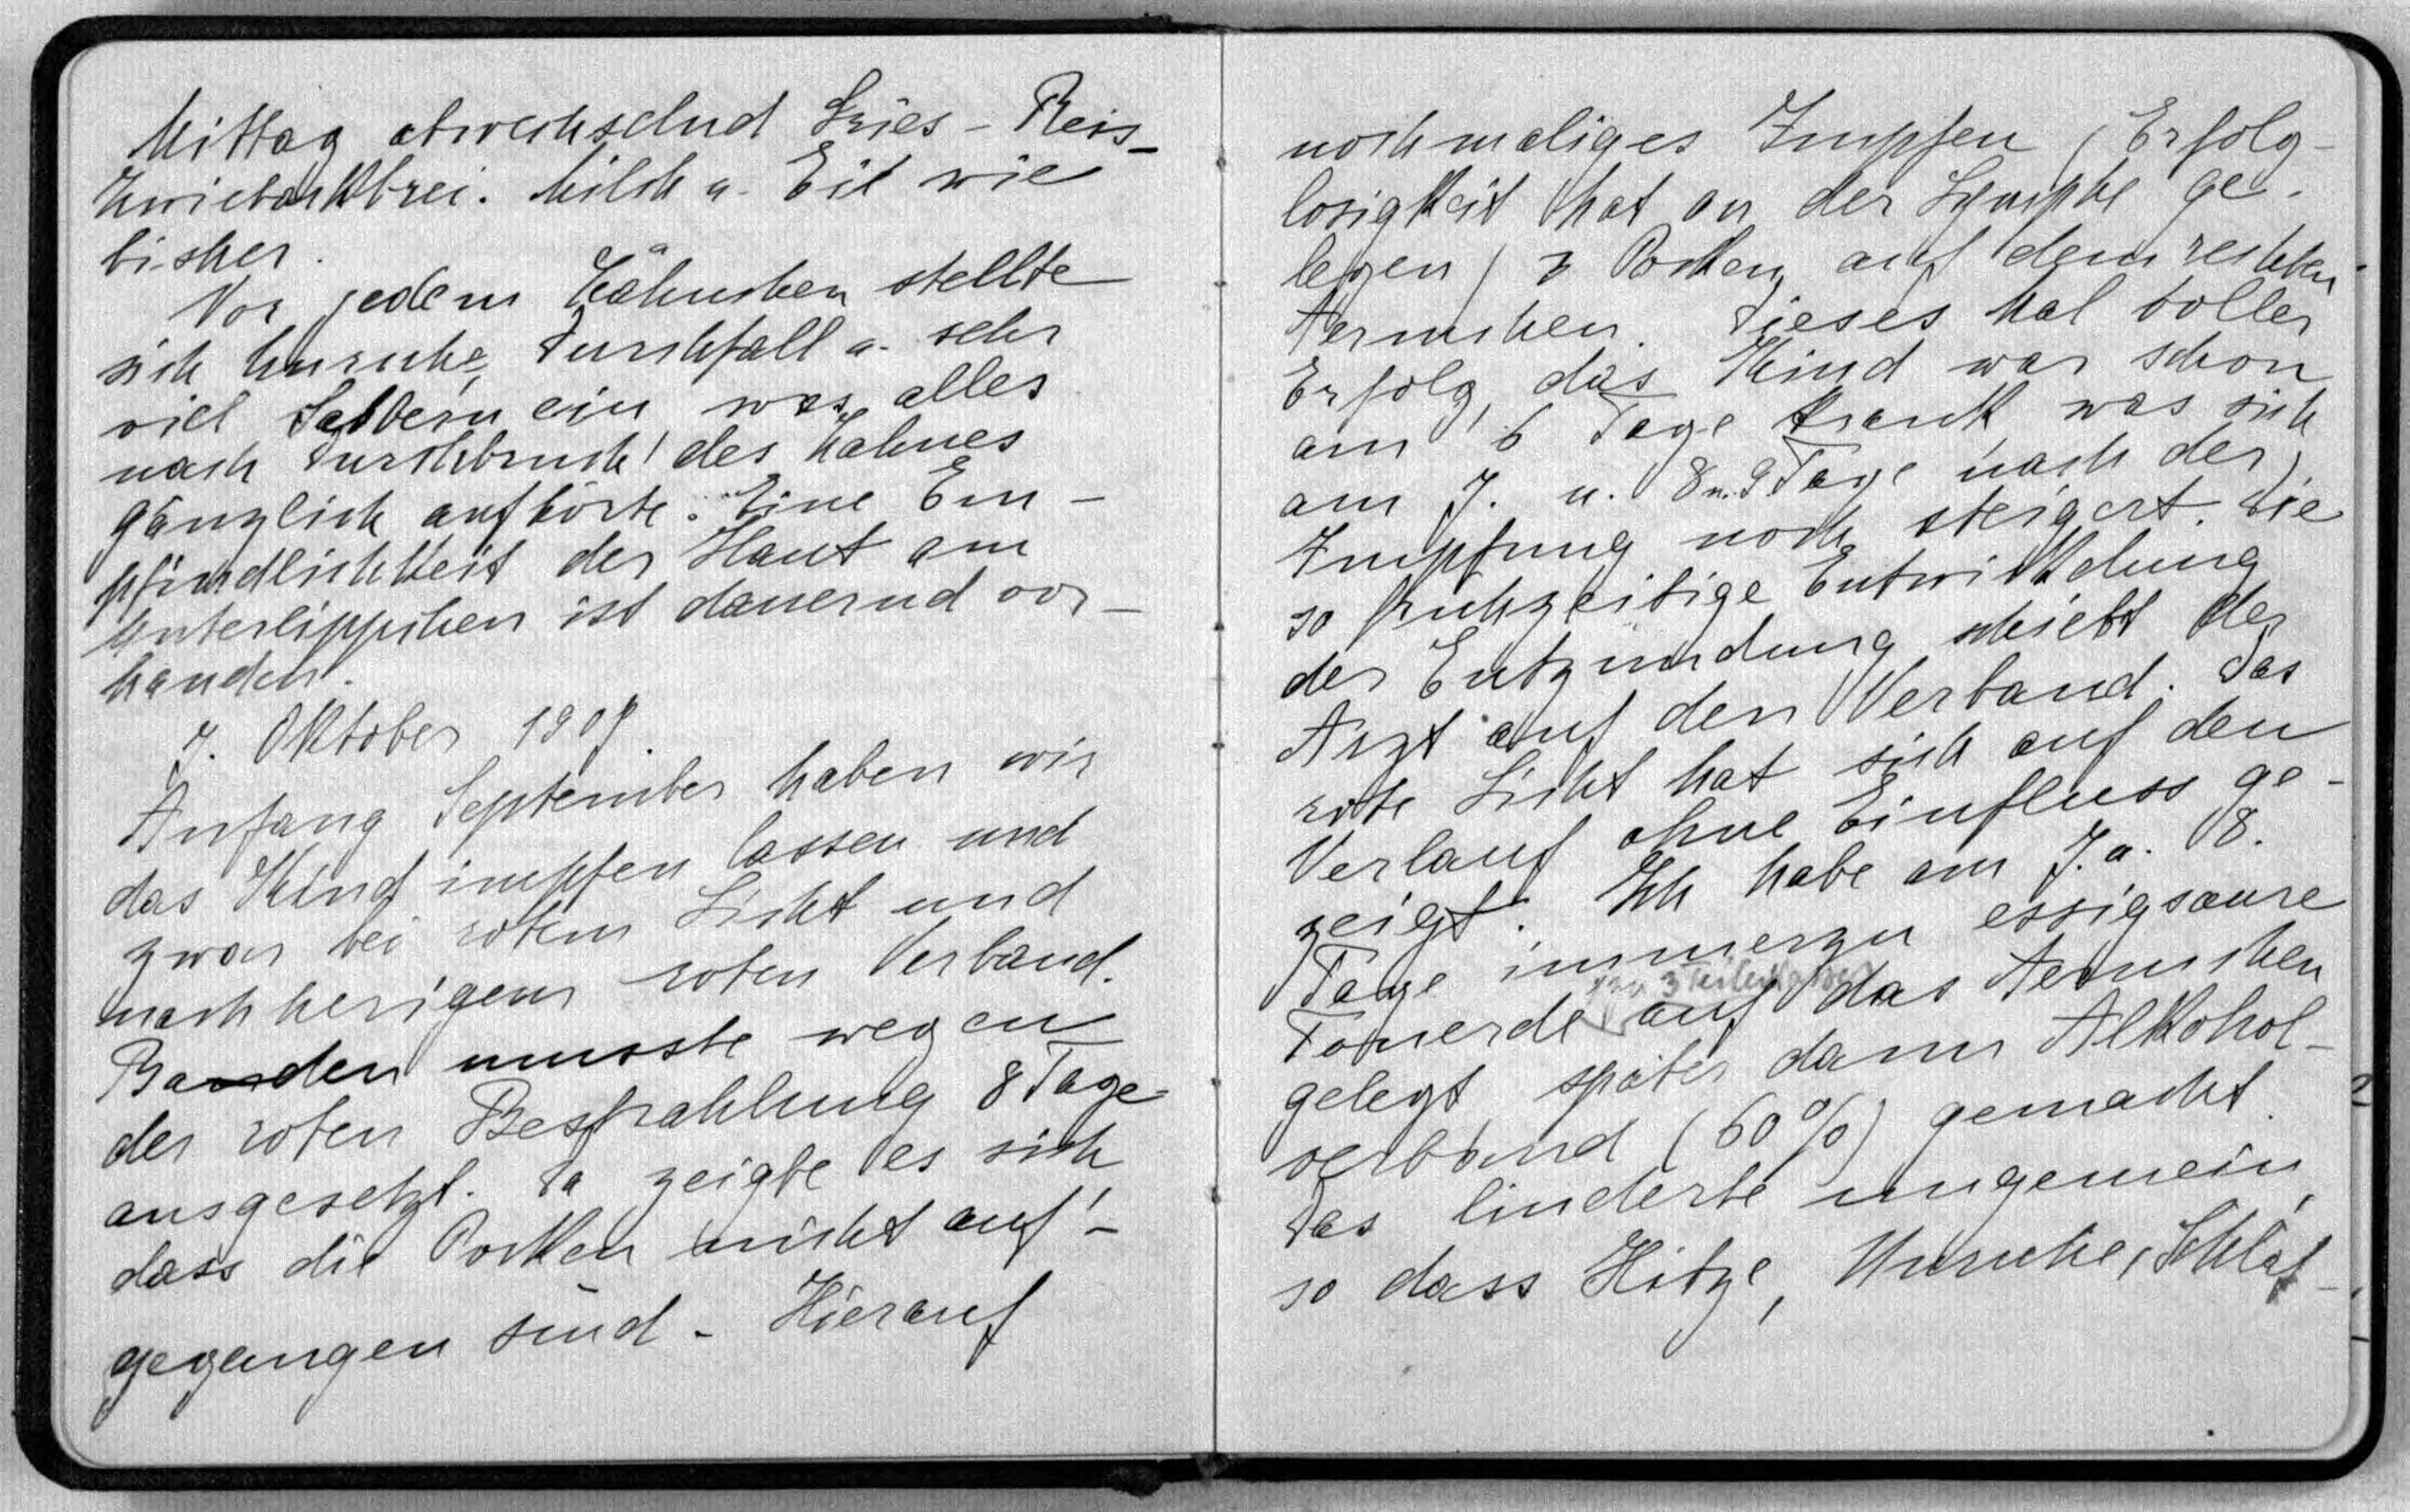 Mittag abwechselnd Gries - Reis -
Zwiebackbrei. Milch u. Eit wie
bisher.
Vor jedem Zähnchen stellte
sich Unruhe, Durchfall u. sehr
viel Sabbern ein, was alles
nach Durchbruch des Zahnes
gänzlich aufhörte. Eine Em -
pfindlichkeit der Haut am
Unterlippchen ist dauernd vor -
handen.
7. Oktober 1907.
Anfang September haben wir
das Kind impfen lassen und
zwar bei rotem Licht und
nachherigem roten Verband.
Baden musste wegen
der roten Bestrahlung 8 Tage
ausgesetzt. Da zeigte es sich
dass die Pocken nicht auf -
gegangen sind - Hierauf
nochmaliges Impfen (Erfolg -
losigkeit hat an der Lymphe ge -
legen) 3 Pocken auf dem rechten
Aermchen. Dieses Mal voller
Erfolg, das Kind war schon
am 6 Tage krank, was sich
am 7. u. 8 u. 9 Tage nach der
Impfung noch steigert. Die
so frühzeitige Entwikkelung
der Entzündung schiebt der
Arzt auf den Verband. Das
rote Licht hat sich auf den
Verlauf ohne Einfluss ge -
zeigt. Ich habe am 7. u. 8.
Tage immerzu essigsaure
zu 3 Teilen Wasser
Tonerde auf das Aermchen
gelegt später dann Alkohol -
verband (60%) gemacht.
Das linderte ungemein,
so dass Hitze, Unruhe, Schlaf -